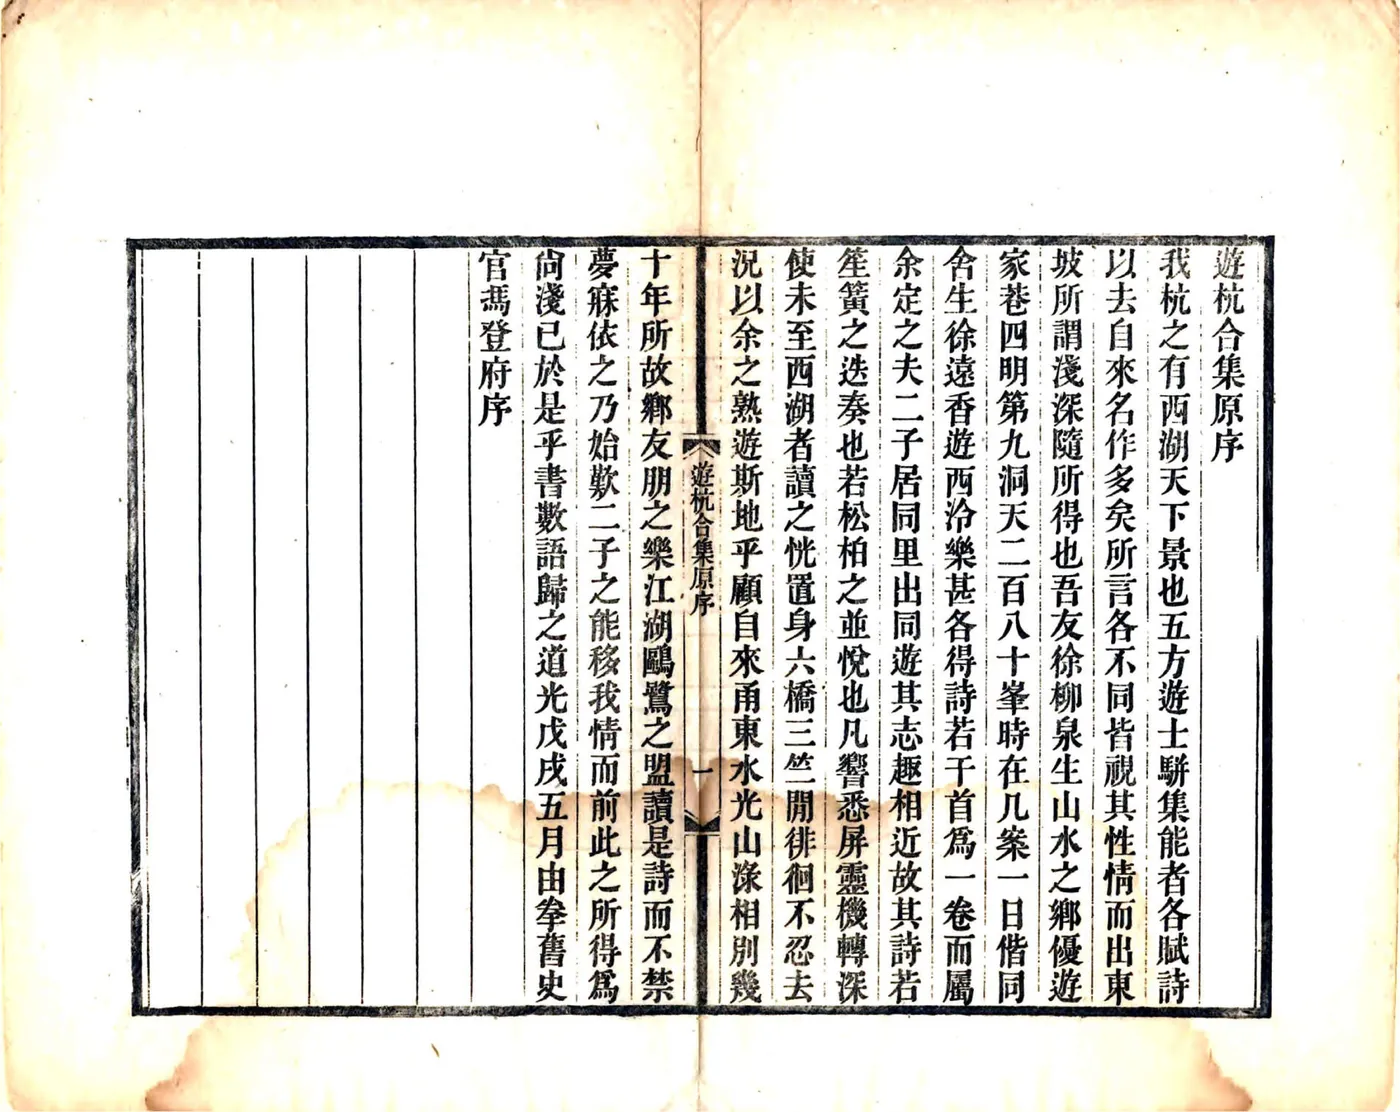 遊杭合集原序
我杭之有西湖天下景也五方遊士駢集能者各賦詩
以去自來名作多矣所言各不同皆視其性情而出東
坡所謂淺深隨所得也吾友徐柳泉生山水之鄉優遊
家巷四明第九洞天二百八十峯時在几案一日偕同
舍生徐遠香遊西泠樂甚各得詩若干首爲一卷而屬
余定之夫二子居同里出同遊其志趣相近故其詩若
笙簧之迭奏也若松柏之並悅也凡響悉屏靈機轉深
使未至西湖者讀之恍置身六橋三竺閒徘徊不忍去
況以余之熟遊斯地乎顧自來甬東水光山淥相別幾
遊杭合集原序
一
十年所故鄉友朋之樂江湖鷗鷺之盟讀是詩而不禁
夢寐依之乃始歎二子之能移我情而前此之所得爲
尙淺已於是乎書數語歸之道光戊戌五月由拳舊史
官馮登府序